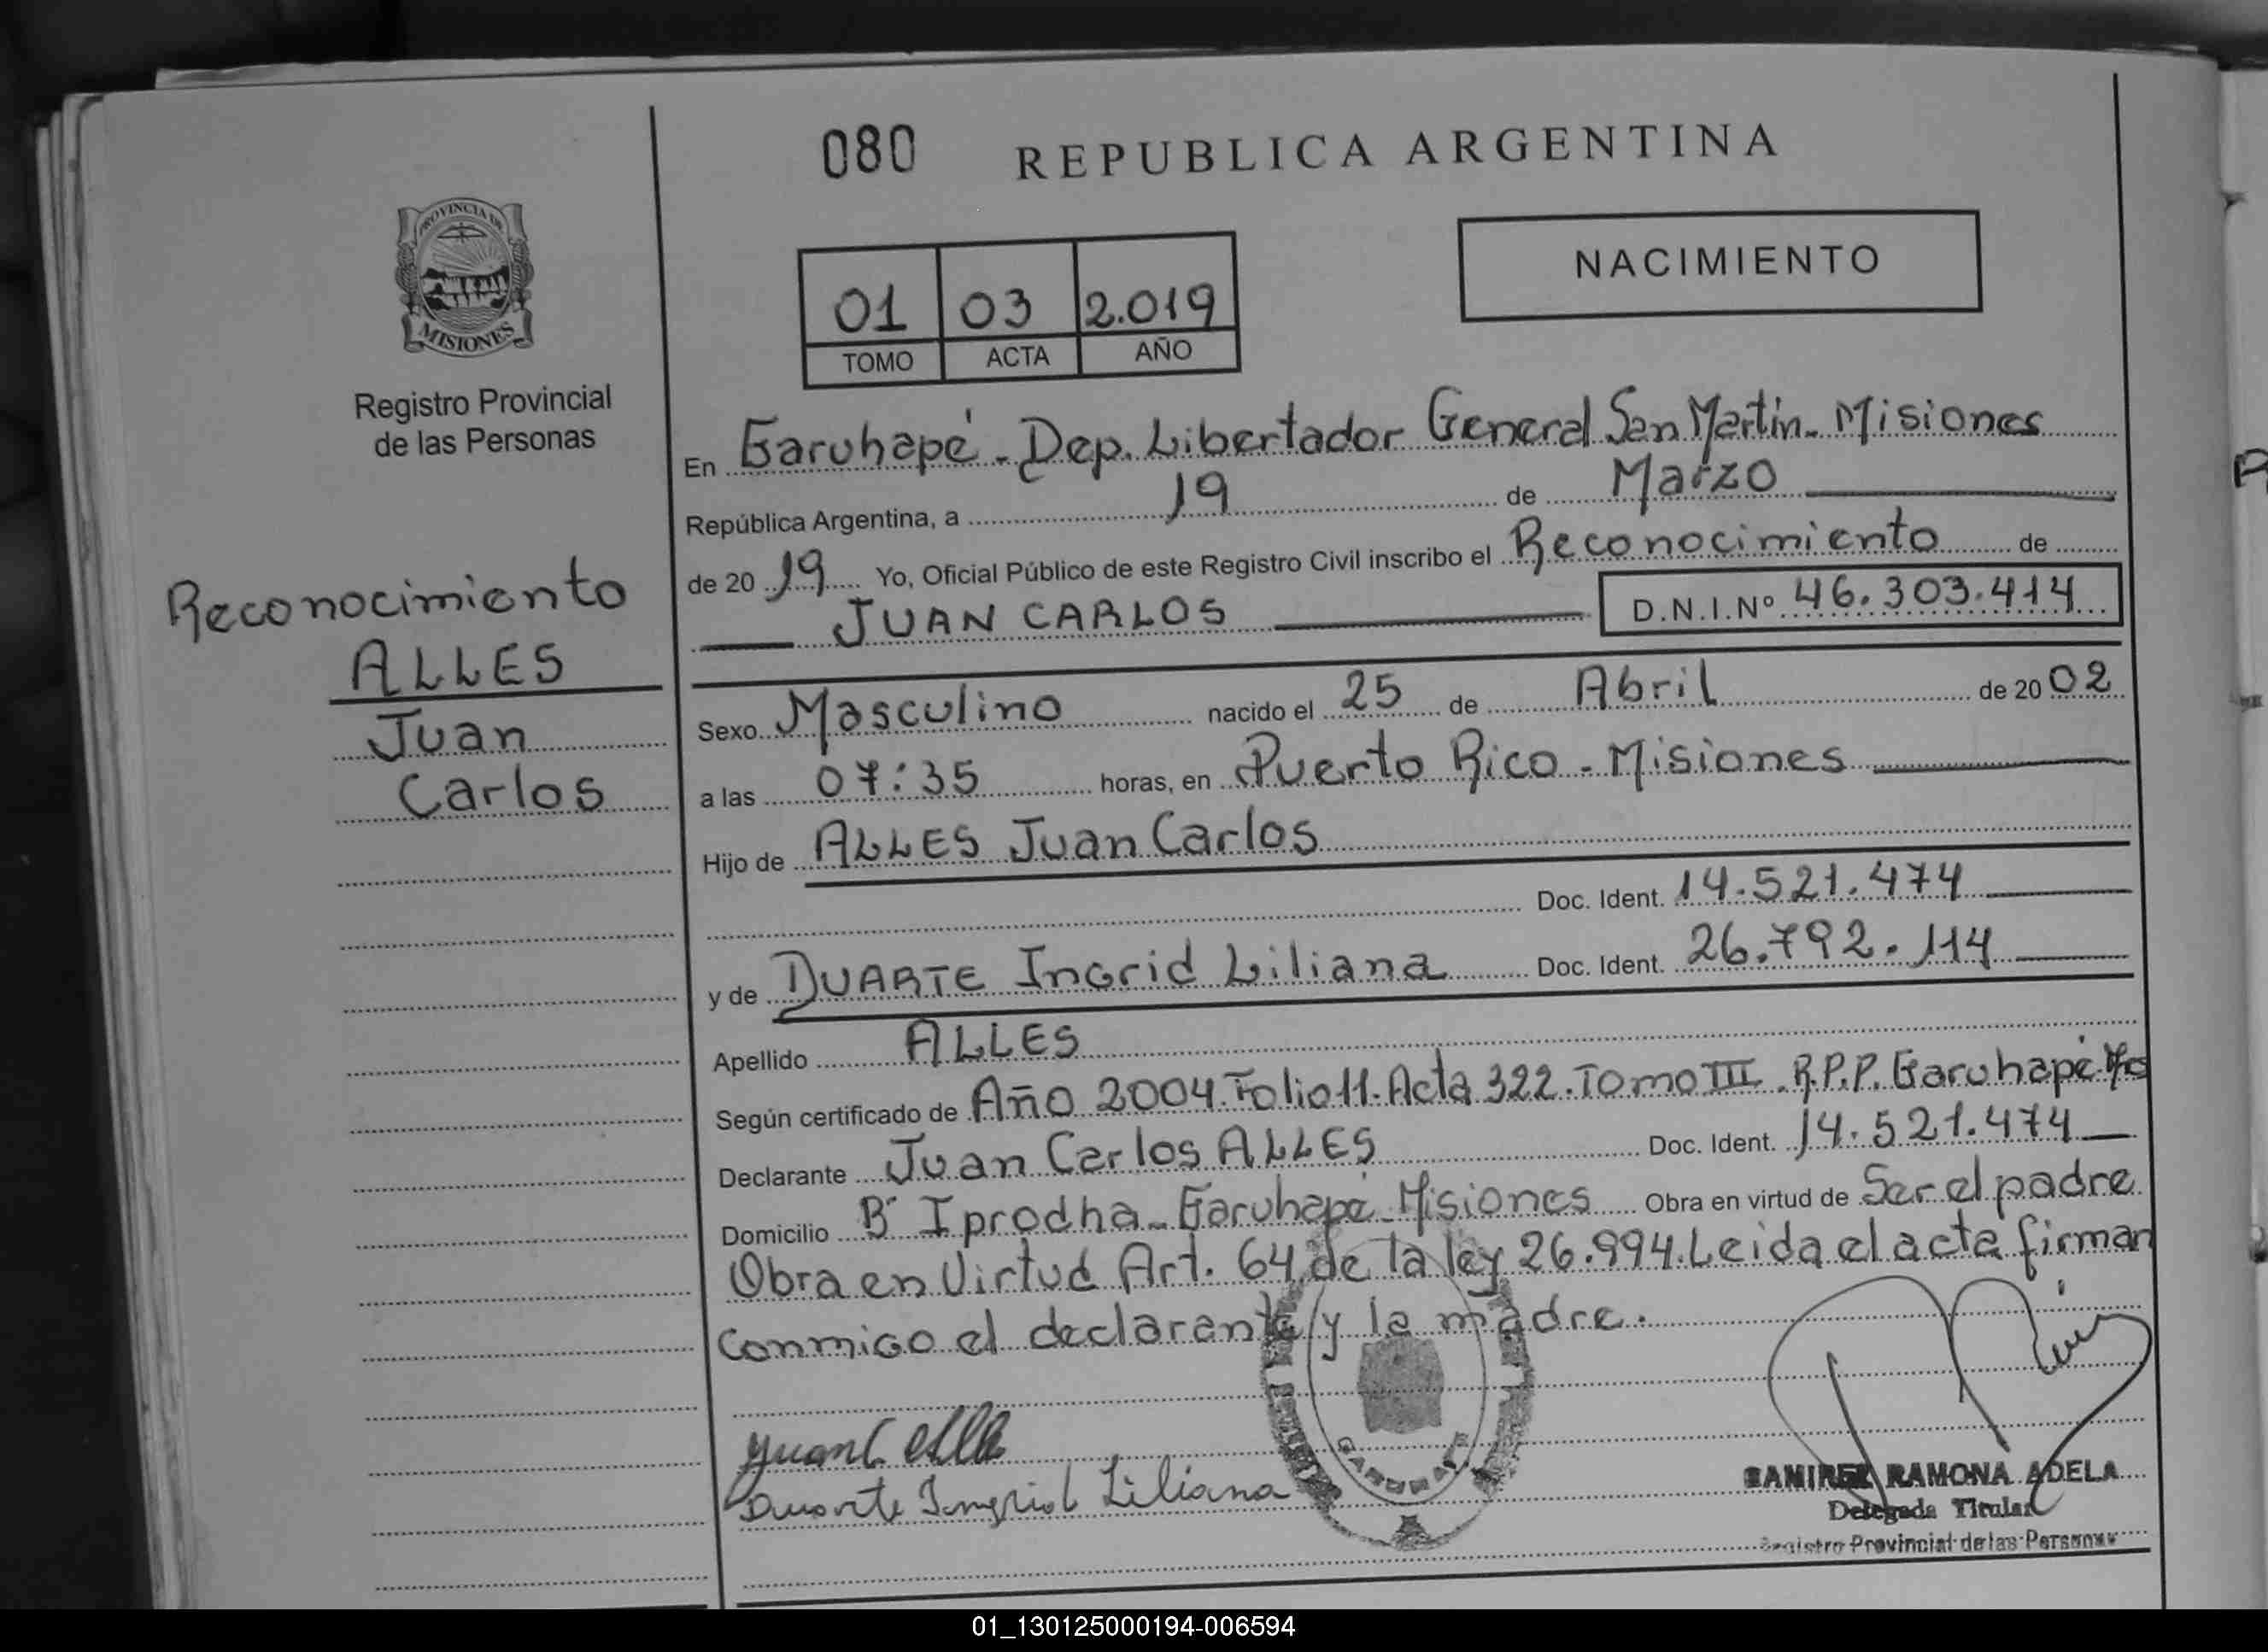 080 REPUBLICA ARGENTINA
PROVINCIA DE
MISIONES
Registro Provincial
de las Personas
Reconocimiento
ALLES
Juan
Carlos
01 03 2.019
TOMO ACTA AÑO
NACIMIENTO
En Garuhapé - Dep. Libertador General San Martín - Misiones
República Argentina, a 19 de Marzo
de 20 19 Yo, Oficial Público de este Registro Civil inscribo el Reconocimiento de
JUAN CARLOS D.N.I.Nº 46.303.414
Sexo Masculino nacido el 25 de Abril de 20 02
a las 07:35 horas, en Puerto Rico - Misiones
Hijo de ALLES Juan Carlos
Doc. Ident. 14.521.474
y de DUARTE Ingrid Liliana Doc. Ident. 26.792.114
Apellido ALLES
Según certificado de Año 2004. Folio 11. Acta 322. Tomo III. R.P.P. Garuhapé
Declarante Juan Carlos ALLES Doc. Ident. 14.521.474
Domicilio Bº Iprodha - Garuhapé - Misiones Obra en virtud de Ser el padre
Obra en Virtud Art. 64 de la ley 26.994. Leida el acta firman
conmigo el declarante y la madre.
Duarte Ingrid Liliana
RAMIREZ RAMONA ADELA
Delegada Titular
Registro Provincial de las Personas
01_130125000194-006594